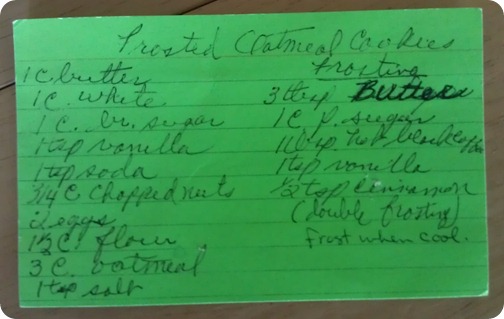 Frosted Oatmeal Cookies
1 C butter
1 C. white
1 C. br. sugar
1 tsp vanilla
1 tsp soda
3/4 C chopped nuts
2 eggs
C. flour
3 C. oatmeal
1 tsp salt
Frosting
3 Butter
1 C p. sugar
hot black coffee
1 tsp vanilla
1/2 tsp cinnamon
(double frosting)
Frost when cool.